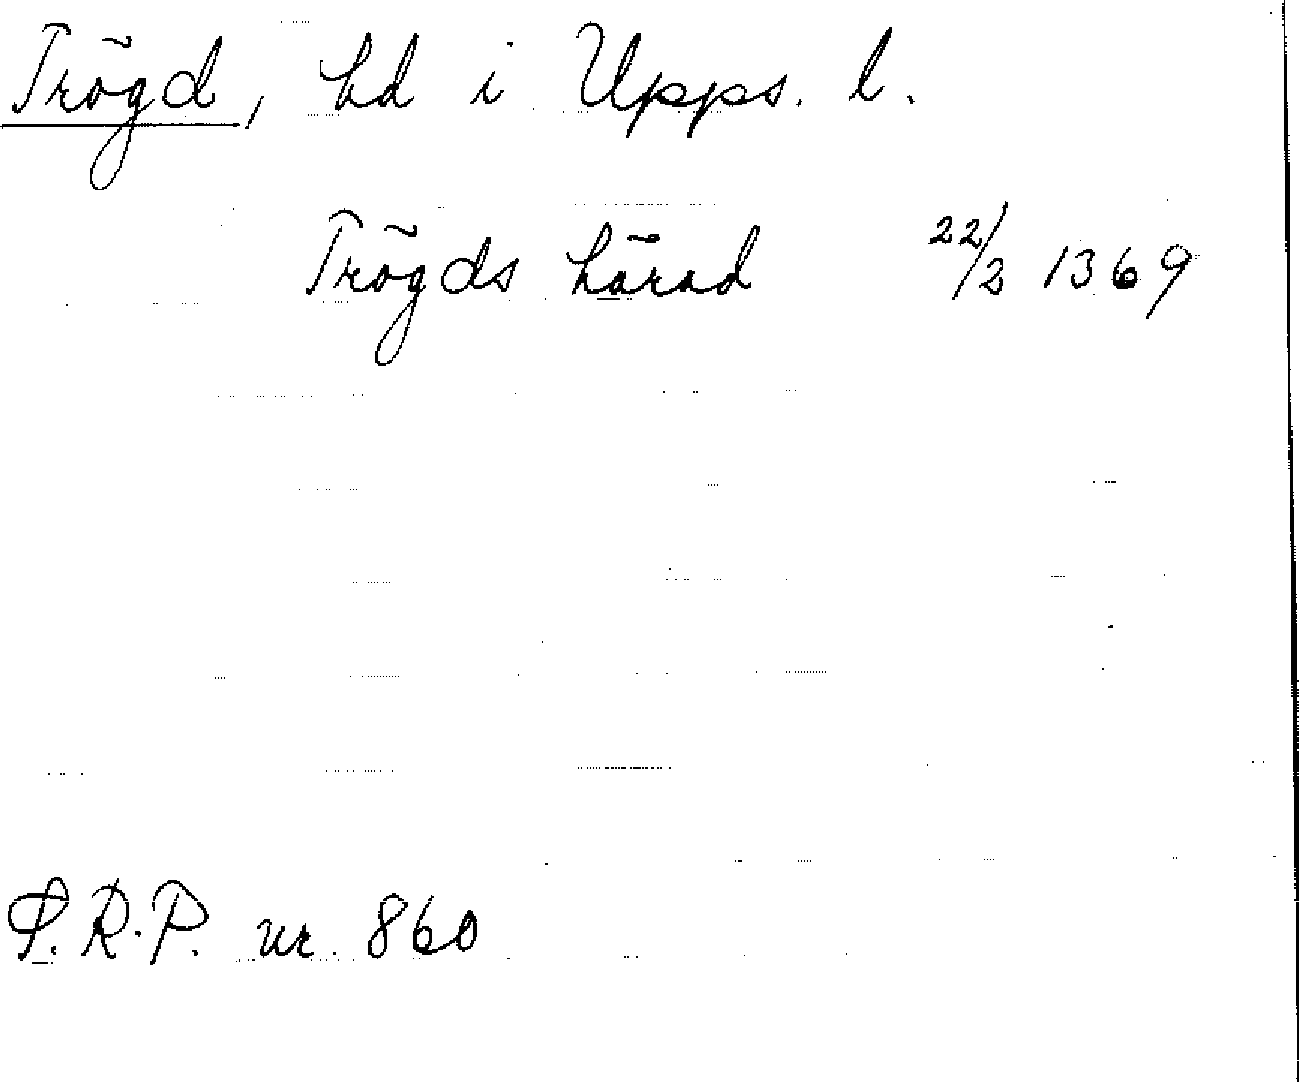 Trögd, hd i Upps. l.
Trögds härad 22/2 1369
S.R.P. nr. 860